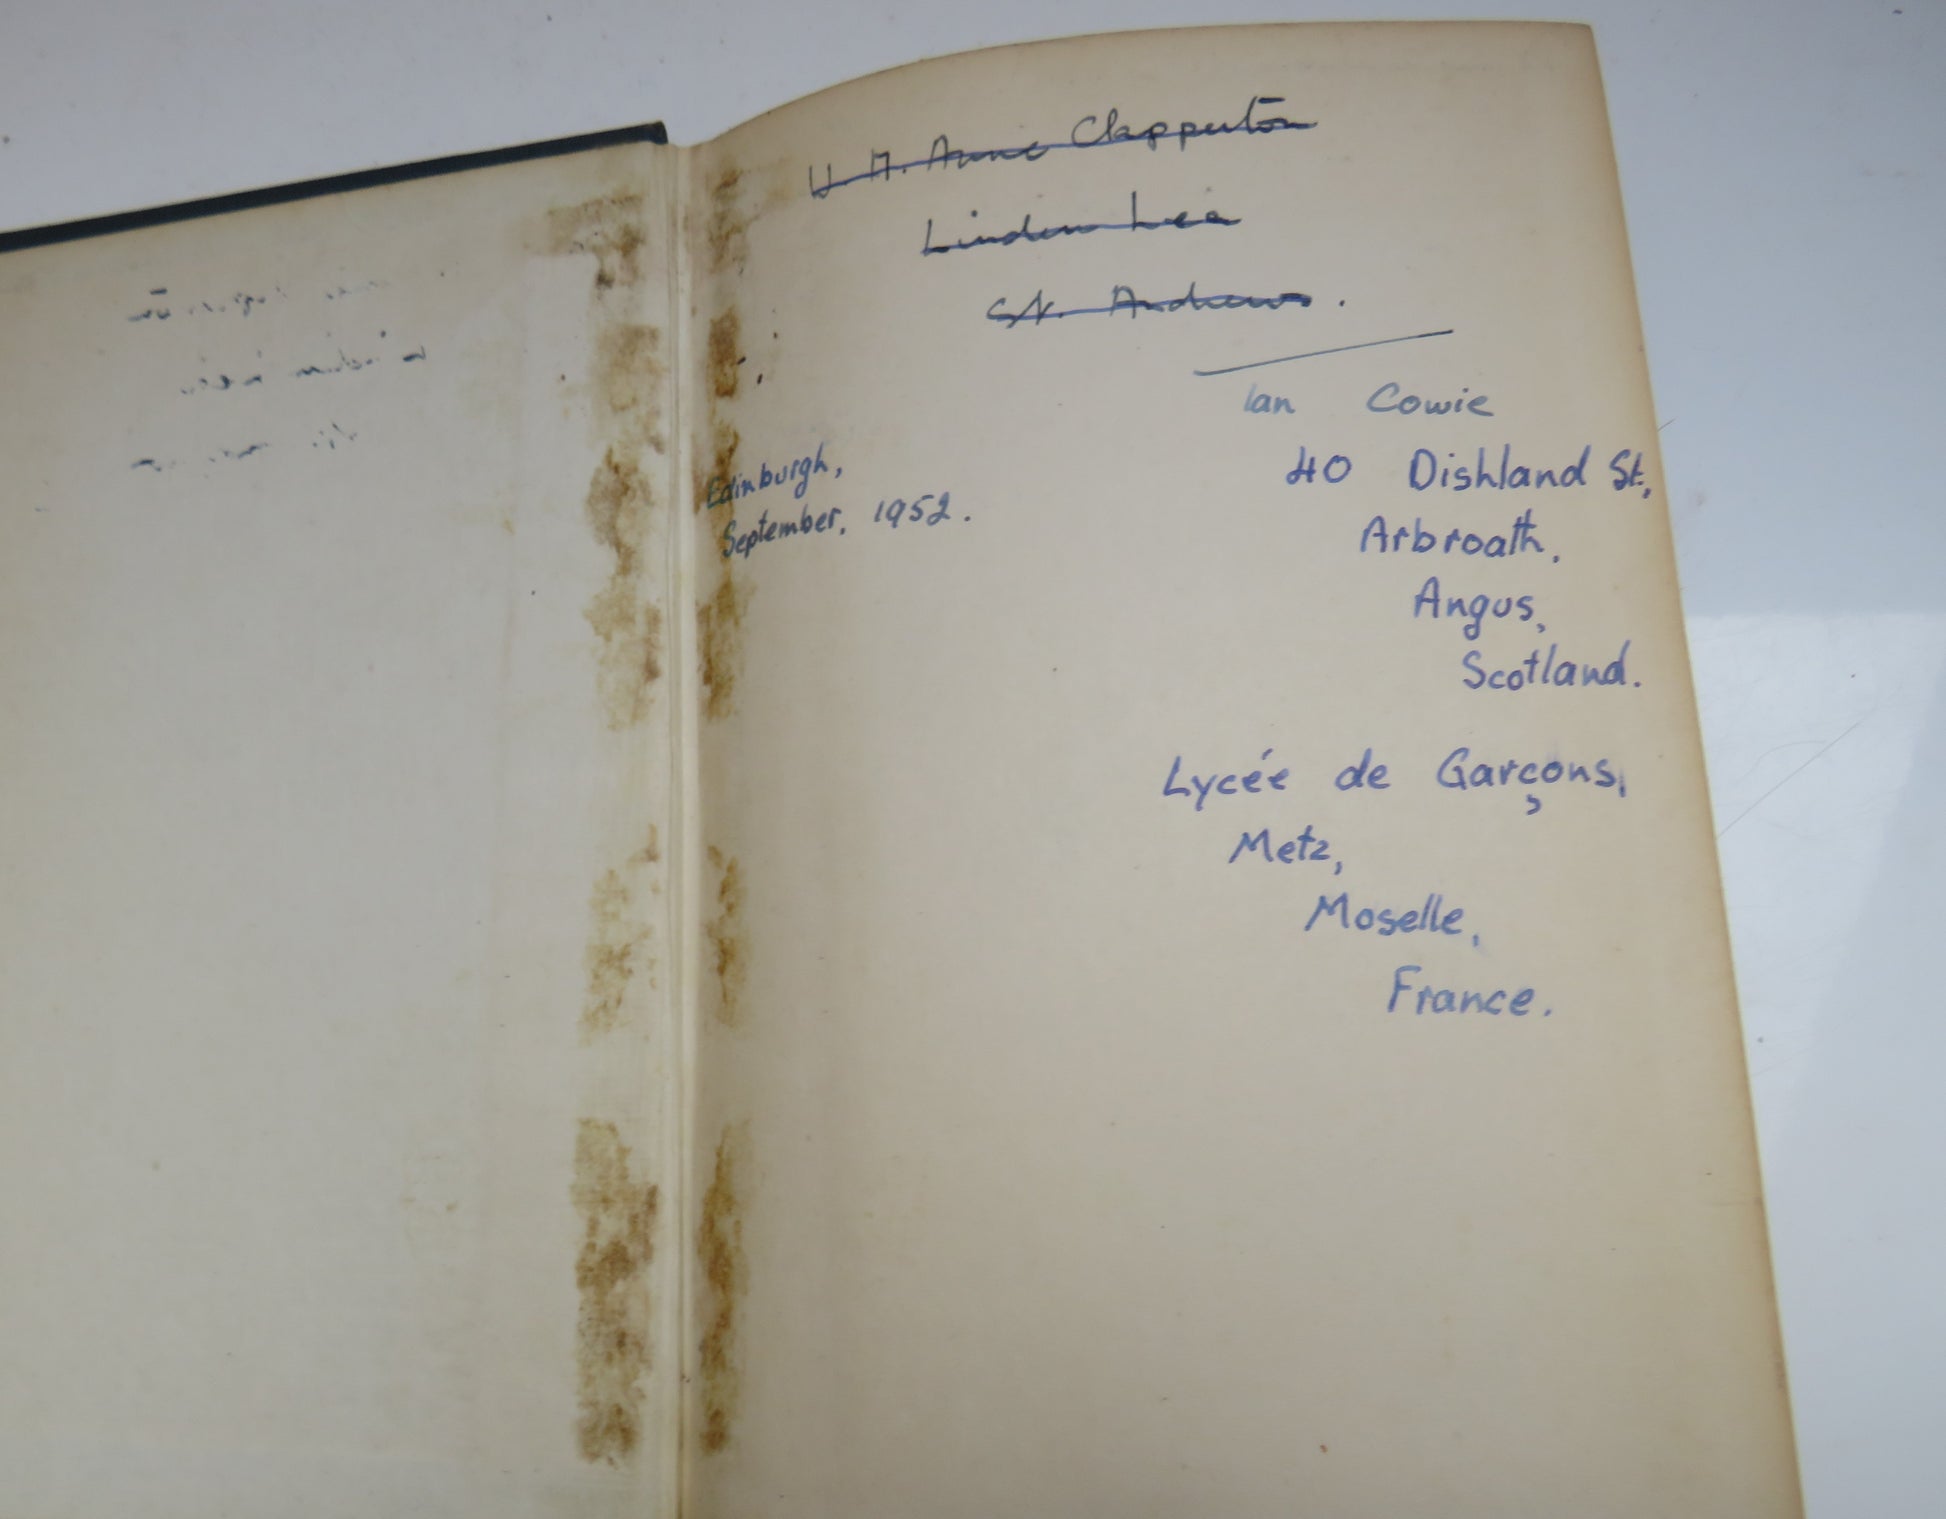 Anne Clapperton
Linden Lea
St. Andrews.
Ian Cowie
40 Dishland St.,
Arbroath,
Angus,
Scotland.
Edinburgh,
September, 1952.
Lycée de Garçons,
Metz,
Moselle,
France.